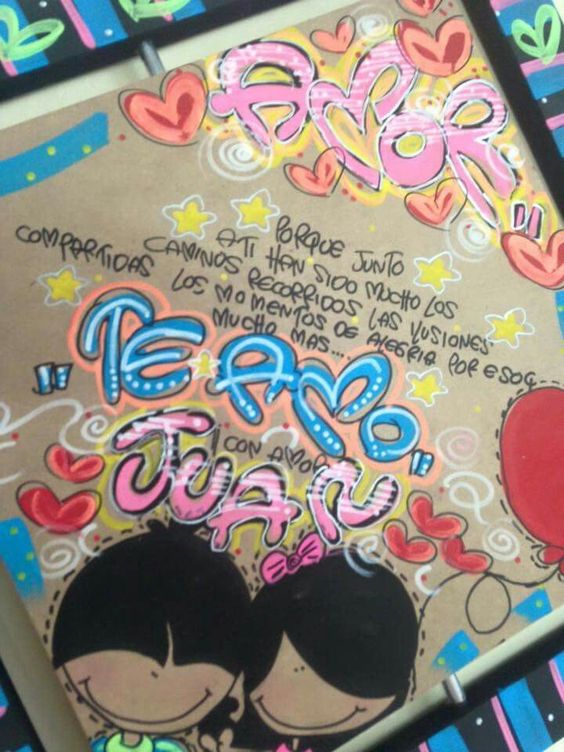 "AMOR"
PORQUE JUNTO
A TI HAN SIDO MUCHO LOS
CAMINOS RECORRIDOS LAS ILUSIONES
COMPARTIDAS LOS MOMENTOS DE ALEGRIA POR ESO Y
MUCHO MAS....
"TE AMO"
CON AMOR
JUAN